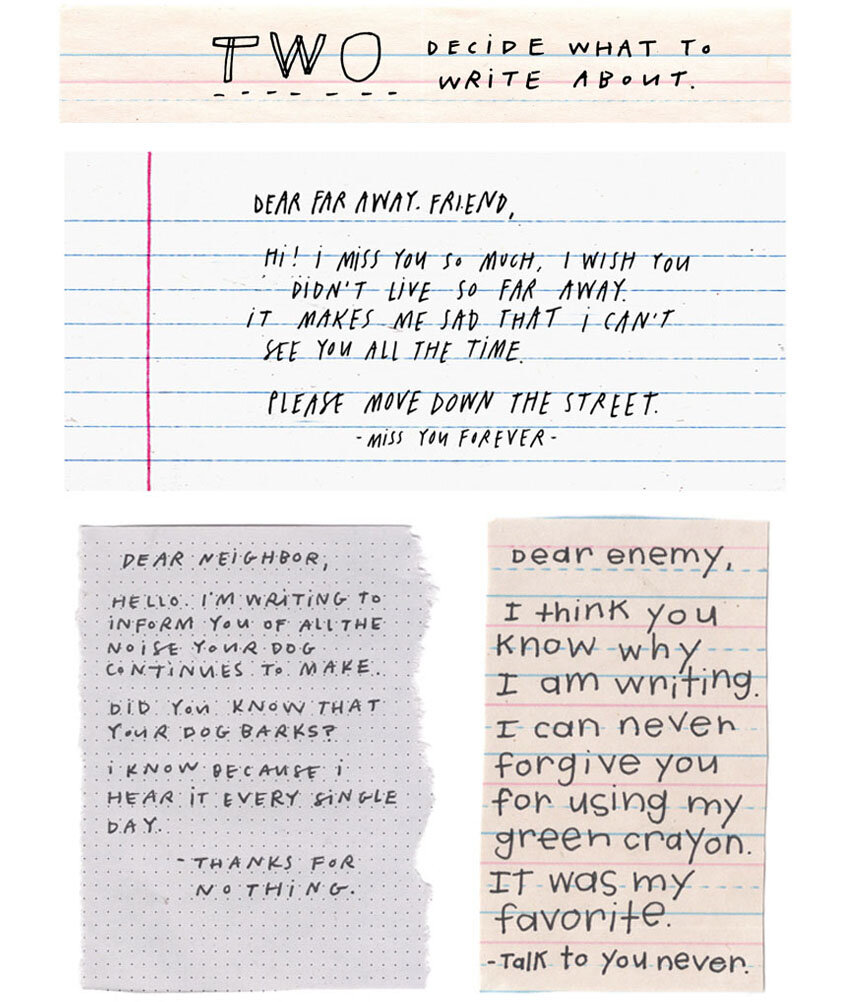 TWO DECIDE WHAT TO
WRITE ABOUT.
DEAR FAR AWAY. FRIEND,
Hi! i MISS YOU SO MUCH, I WISH YOU
DIDN'T LIVE SO FAR AWAY.
IT MAKES ME SAD THAT i CAN'T
SEE YOU ALL THE TIME.
PLEASE MOVE DOWN THE STREET.
- MISS YOU FOREVER -
DEAR NEIGHBOR,
HELLO. I'M WRITING TO
INFORM YOU OF ALL THE
NOISE YOUR DOG
CONTINUES TO MAKE.
DID YOU KNOW THAT
YOUR DOG BARKS?
i KNOW BECAUSE i
HEAR IT EVERY SINGLE
DAY.
- THANKS FOR
NOTHING.
Dear enemy,
I think you
know why
I am writing.
I can never
forgive you
for using my
green crayon.
IT was my
favorite.
- Talk to you never.